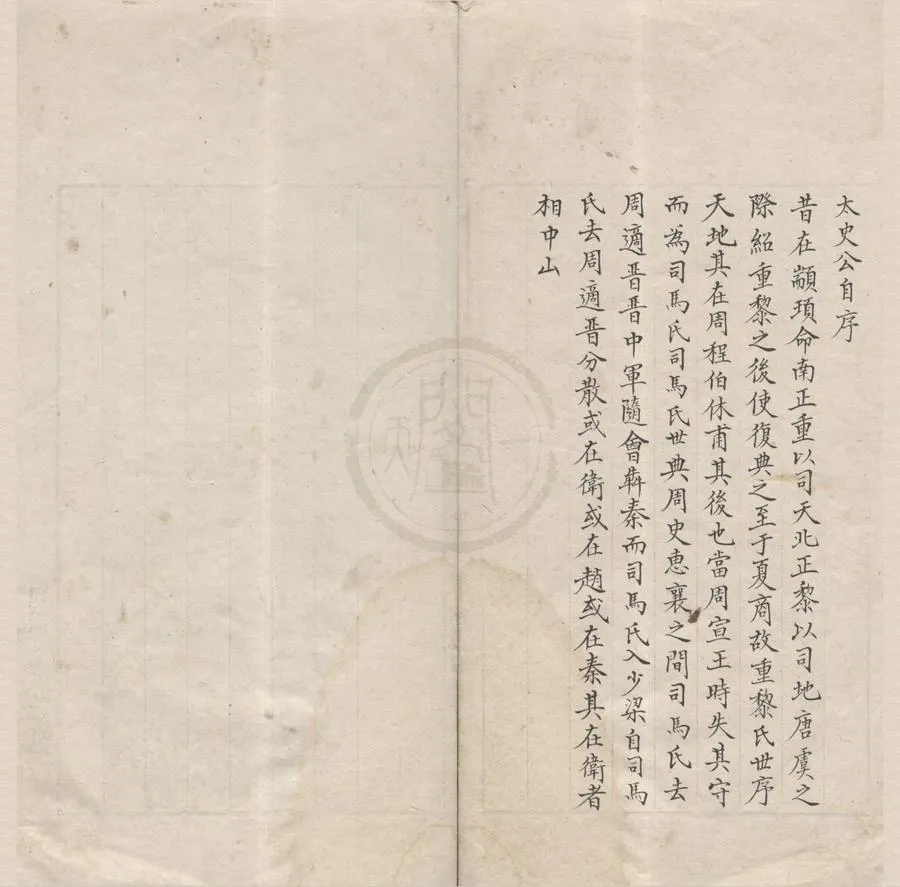 太史公自序
昔在顓頊命南正重以司天北正黎以司地唐虞之
際紹重黎之後使復典之至于夏商故重黎氏世序
天地其在周程伯休甫其後也當周宣王時失其守
而為司馬氏司馬氏世典周史惠襄之間司馬氏去
周適晋晋中軍隨會犇秦而司馬氏入少梁自司馬
氏去周適晋分散或在衛或在趙或在秦其在衛者
相中山